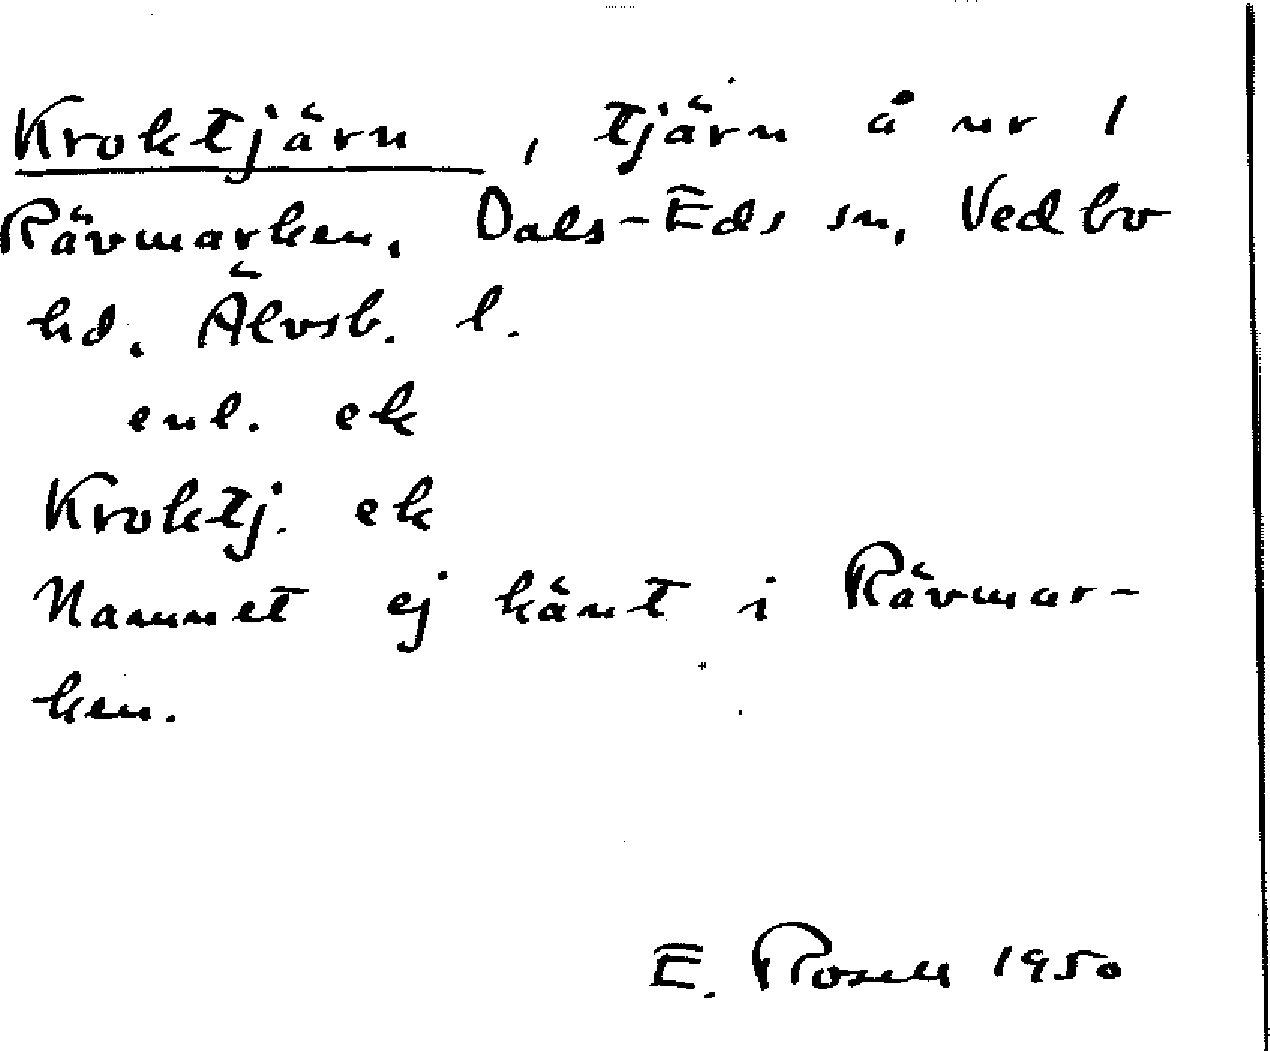 Kroktjärn, tjärn å nr 1
Rävmarken, Dals-Eds sn, Vedbo
hd. Älvsb. l.
enl. ek
Kroktj. ek
Namnet ej känt i Rävmar-
ken.
E. Rosell 1950